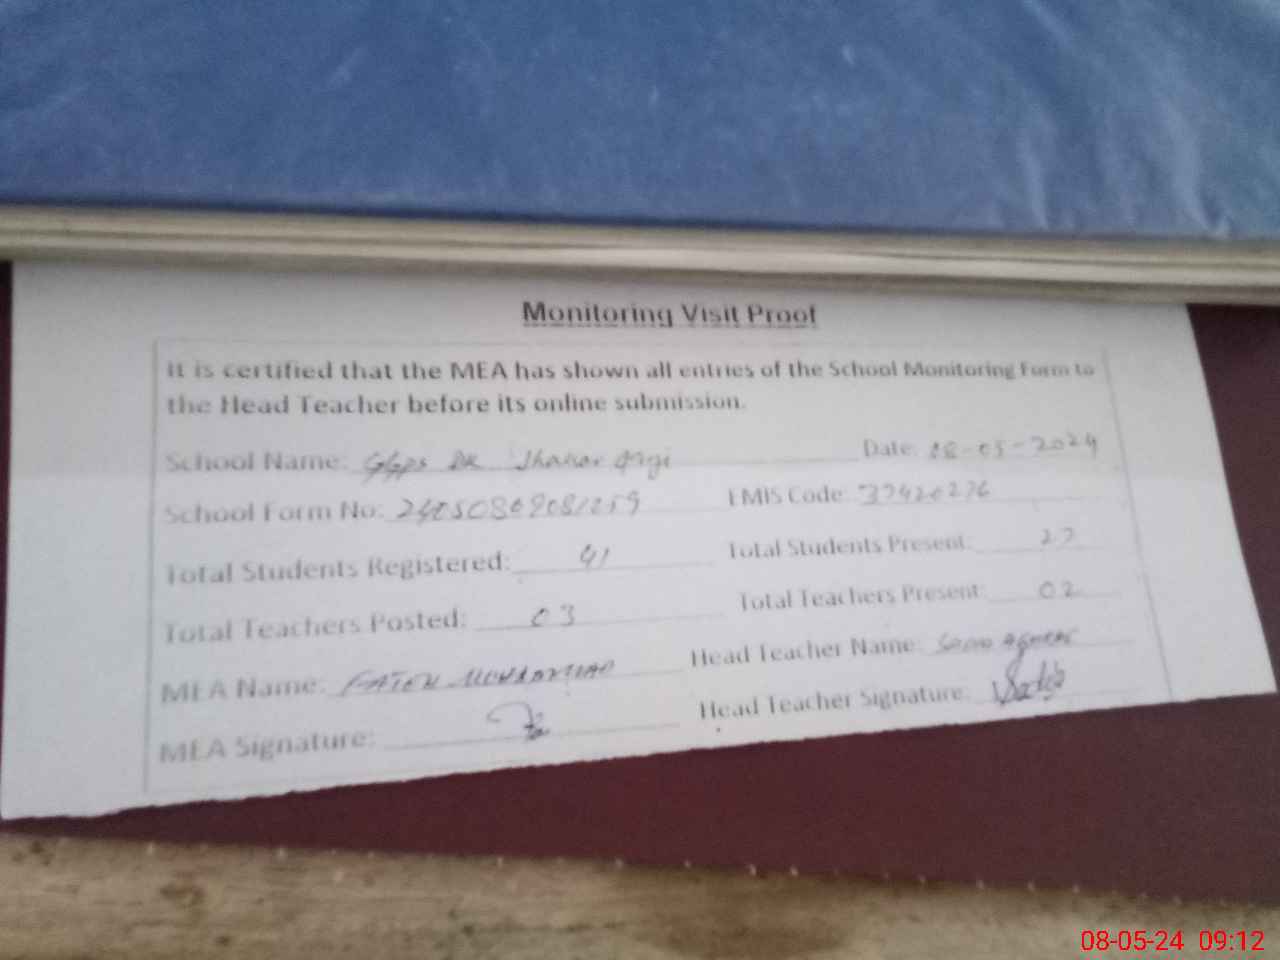 Monitoring Visit Proof
It is certified that the MEA has shown all entries of the School Monitoring Form to
the Head Teacher before its online submission.
School Name: GGPS DK Date: 08-05-2024
School Form No: EMIS Code: 37420276
Total Students Registered: 41 Total Students Present: 27
Total Teachers Posted: 03 Total Teachers Present: 02
MEA Name: Head Teacher Name:
MEA Signature: Head Teacher Signature:
08-05-24 09:12